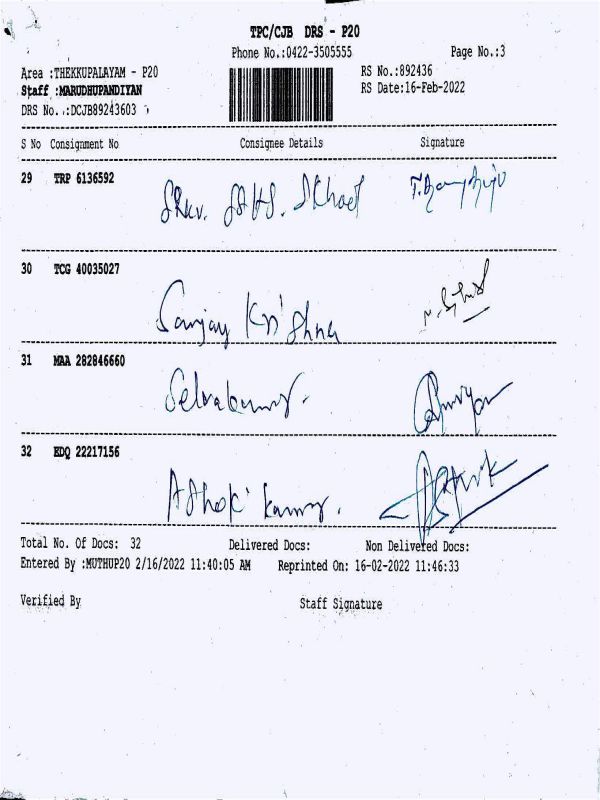 TPC/CJB DRS - P20
Phone No.:0422-3505555 Page No.:3
Area :THEKKUPALAYAM - P20 RS No.:892436
Staff :MARUDHUPANDIYAN RS Date:16-Feb-2022
DRS No..:DCJB89243603
S No Consignment No Consignee Details Signature
29 TRP 6136592
30 TCG 40035027
Sanjay Krishna
31 MAA 282846660
Selvakumar.
32 EDQ 22217156
Ashok kumar.
Total No. Of Docs: 32 Delivered Docs: Non Delivered Docs:
Entered By :MUTHUP20 2/16/2022 11:40:05 AM Reprinted On: 16-02-2022 11:46:33
Verified By Staff Signature